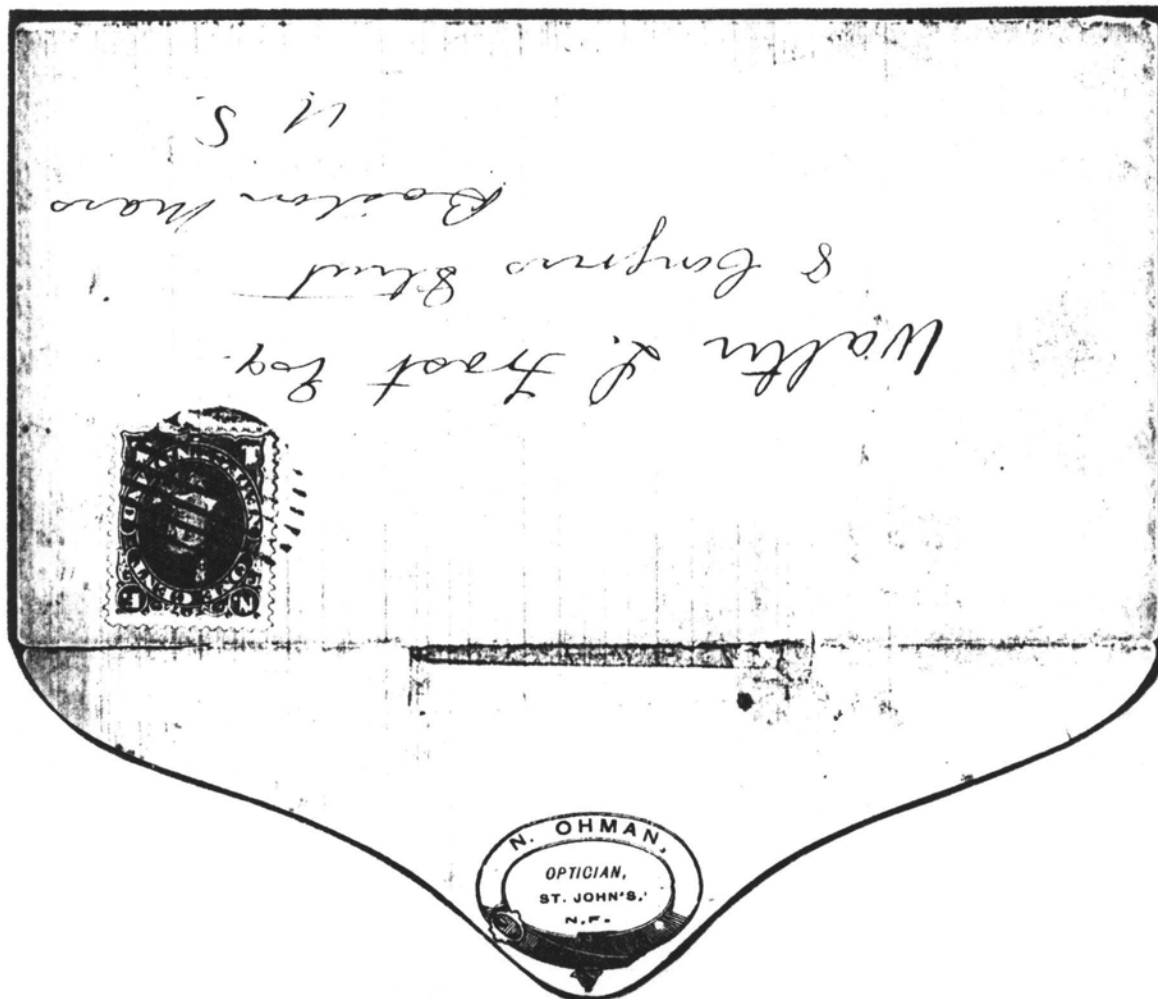 Walter L. Frost Esq.
8 Congress Street
Boston Mass
U. S.
NEWFOUNDLAND
ONE CENT
N F
1 1
N. OHMAN,
OPTICIAN,
ST. JOHN'S,
N.F.